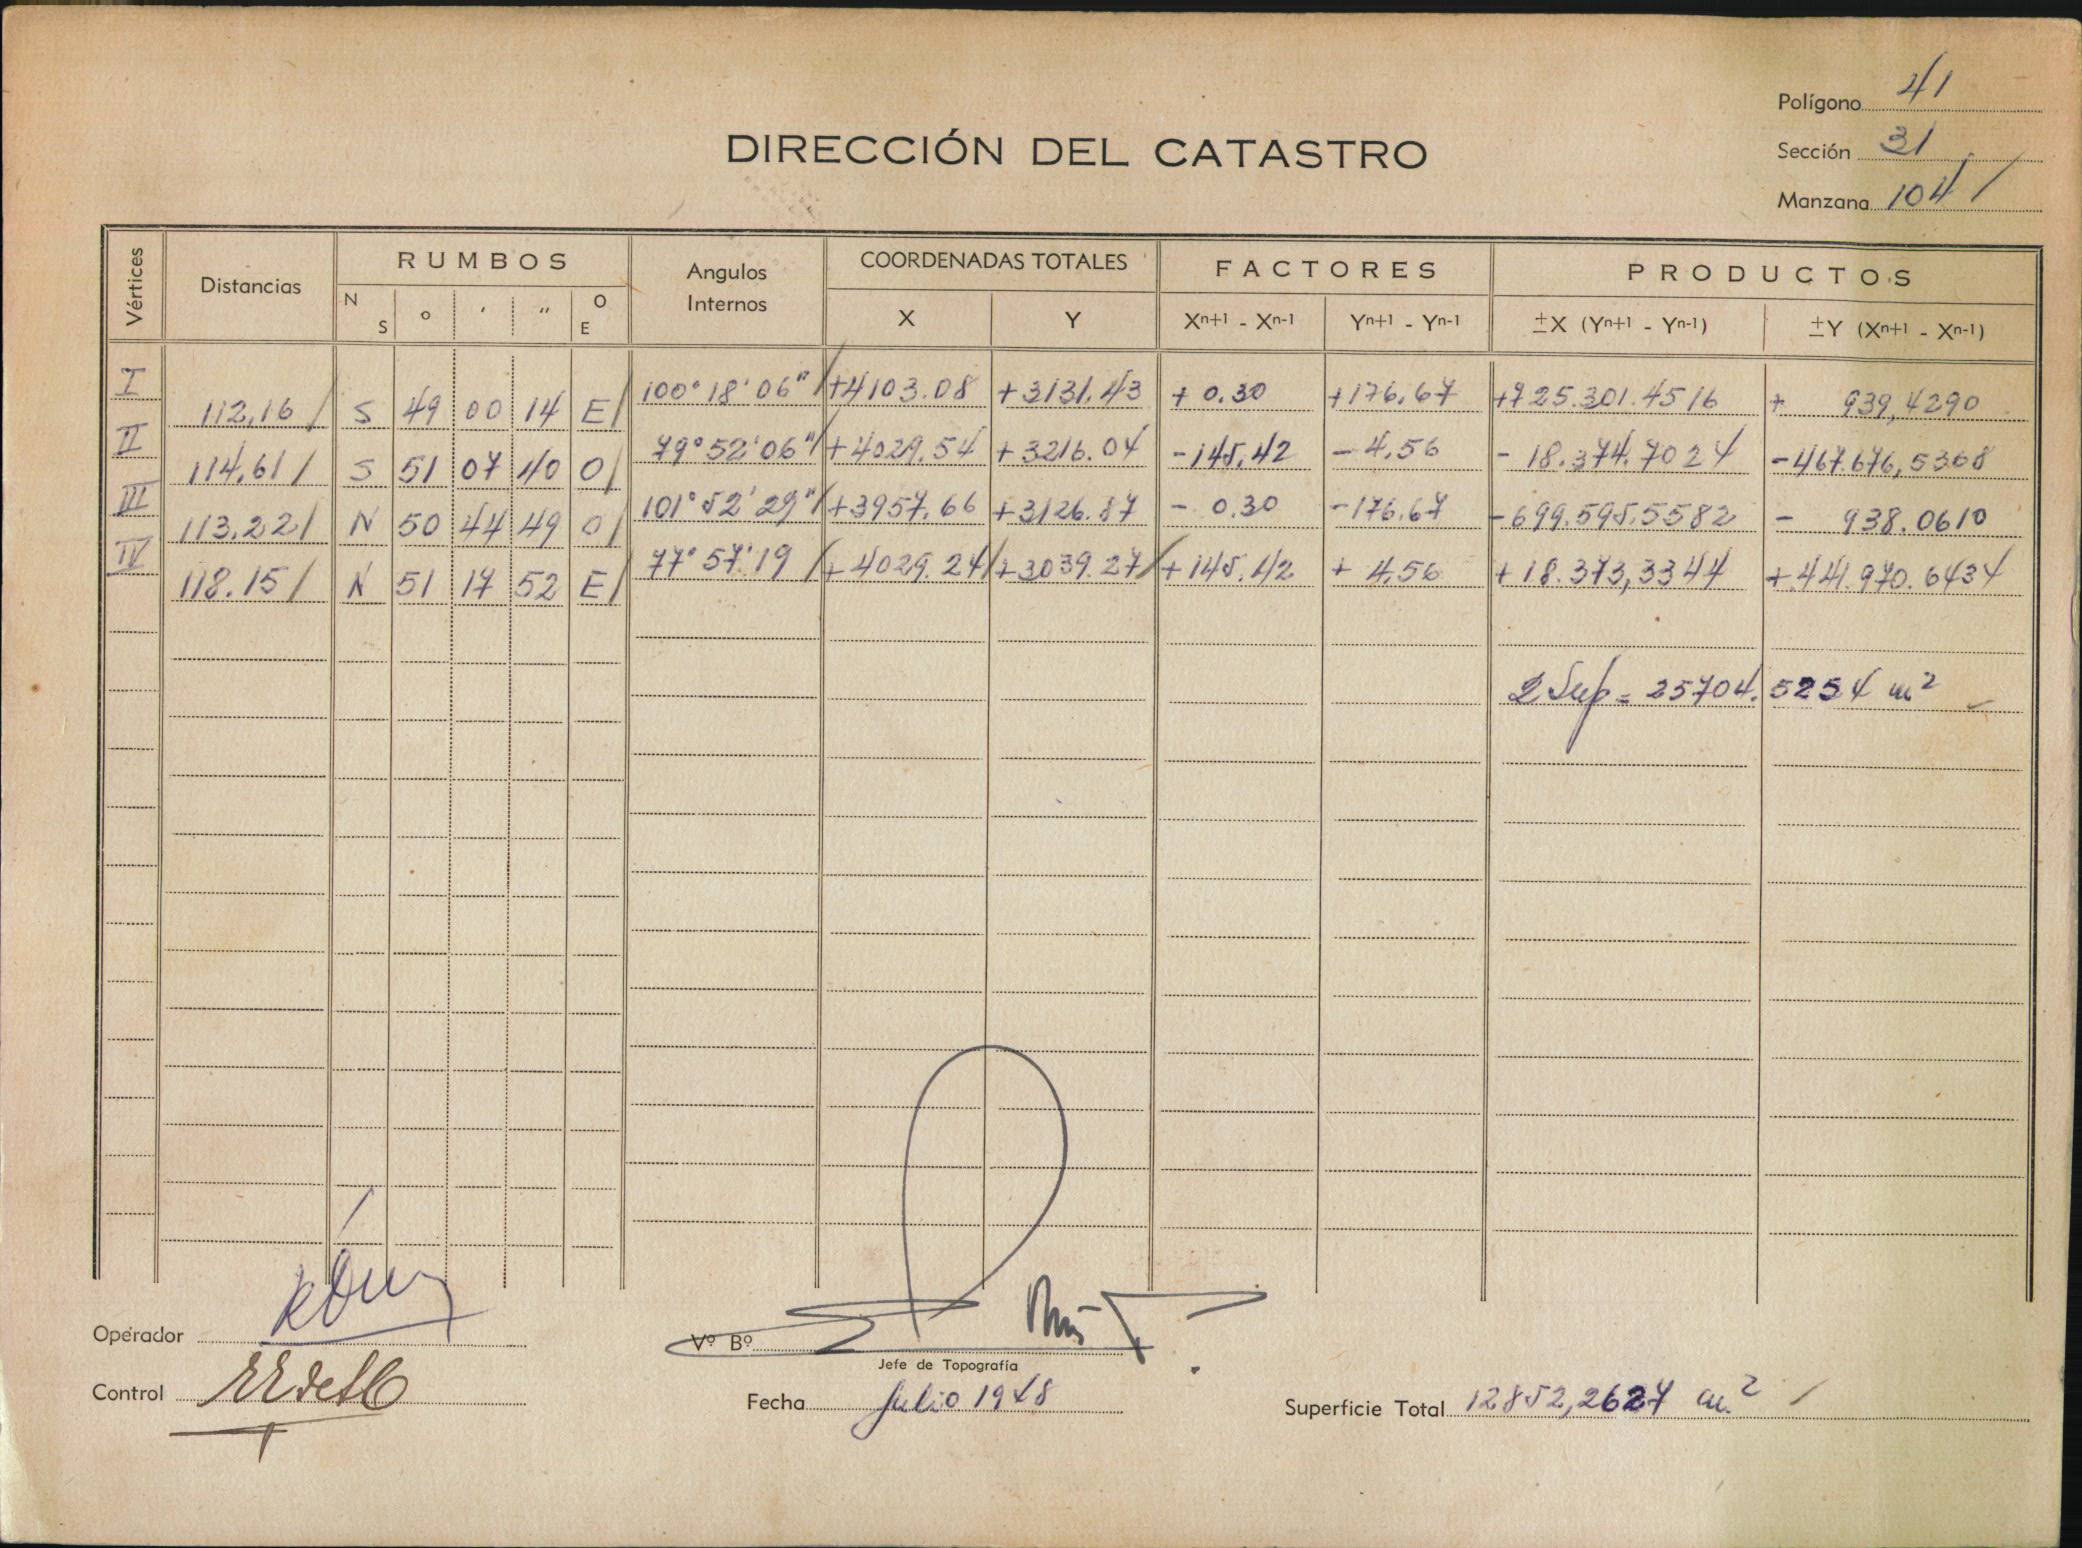 Polígono 41
DIRECCIÓN DEL CATASTRO
Sección 31
Manzana 104
Vértices Distancias RUMBOS Angulos Internos COORDENADAS TOTALES FACTORES PRODUCTOS
N S ° ' " O E X Y Xⁿ⁺¹ - Xⁿ⁻¹ Yⁿ⁺¹ - Yⁿ⁻¹ ±X (Yⁿ⁺¹ - Yⁿ⁻¹) ±Y (Xⁿ⁺¹ - Xⁿ⁻¹)
I 100° 18' 06" +4103.08 +3131.43 + 0.30 +176.67 +725.301.4516 + 939,4290
112,16 S 49 00 14 E
II 79° 52' 06" +4029.54 +3216.04 -145,42 -4,56 - 18.374.7024 -467.676,5368
114,61 S 51 07 40 O
III 101° 52' 29" +3957.66 +3126.87 - 0.30 -176.67 -699.595.5582 - 938.0610
113.22 N 50 44 49 O
IV 77° 57' 19 +4029.24 +3039.27 +145.42 + 4,56 +18.373,3344 +441.970.6434
118.15 N 51 17 52 E
2 Sup = 25704.5254 m²
Operador
Vº Bº
Jefe de Topografía
Control
Fecha Julio 1948
Superficie Total 12852,2627 m.²